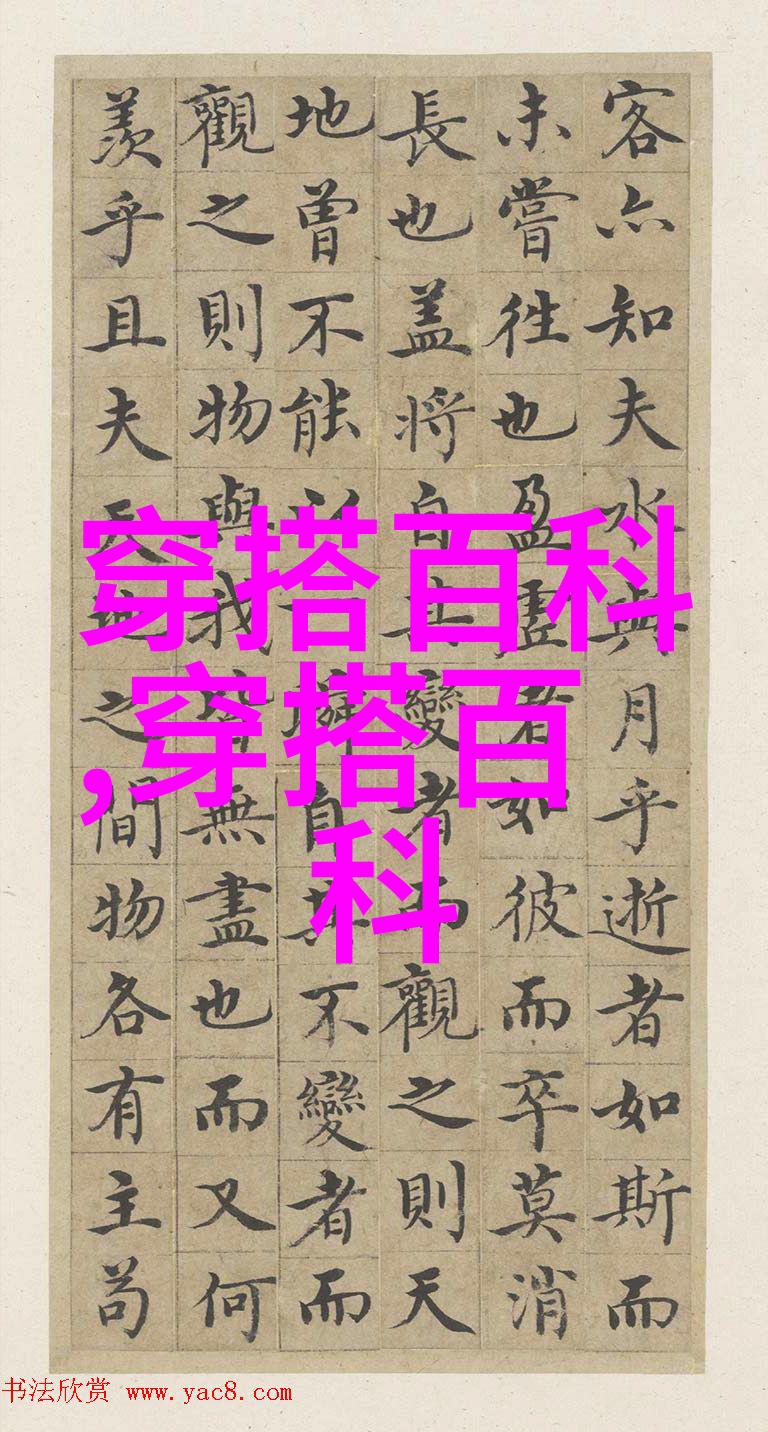 客亦知夫水與月乎逝者如斯而
未嘗往也盈虛者如彼而卒莫消
長也盖將自其變者而觀之則天
地曽不能以瞬自其不變者而
觀之則物與我皆無盡也而又何
羨乎且夫天地之間物各有主苟
穿搭百科
,穿搭百
科
书法欣赏 www.yac8.com